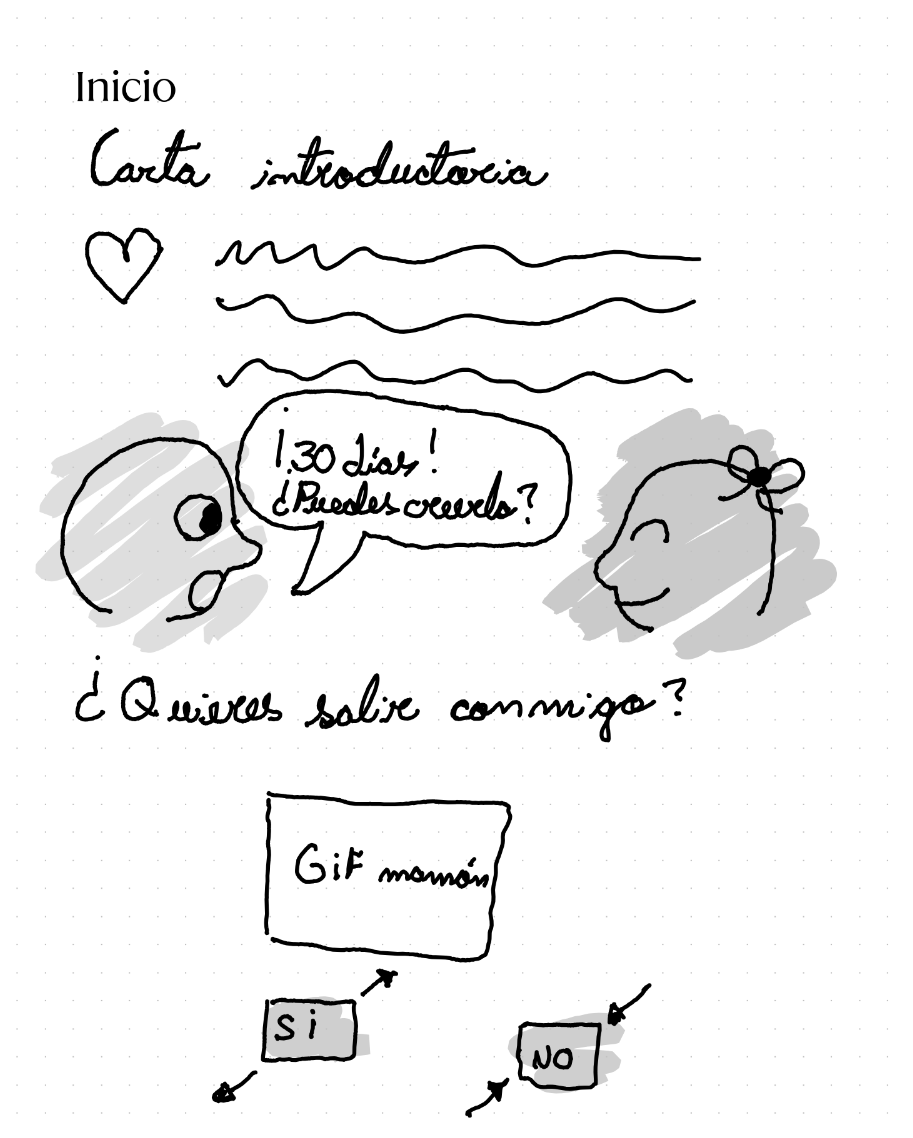 Inicio
Carta introductoria
¡30 días!
¿Puedes creerlo?
¿Quieres salir conmigo?
Gif mamón
Si
NO